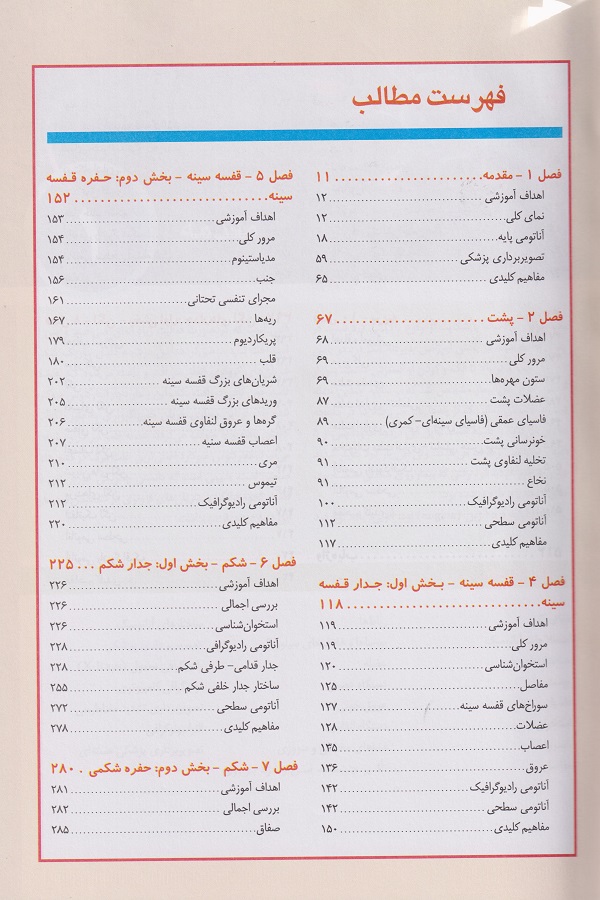 فهرست مطالب
فصل ۱ - مقدمه....................... ۱۱
اهداف آموزشی.......................۱۲
نمای کلی.......................۱۲
آناتومی پایه.......................۱۸
تصویربرداری پزشکی.......................۵۹
مفاهیم کلیدی.......................۶۵
فصل ۲ - پشت....................... ۶۷
اهداف آموزشی.......................۶۸
مرور کلی.......................۶۹
ستون مهره‌ها.......................۶۹
عضلات پشت.......................۸۷
فاسیای عمقی (فاسیای سینه‌ای- کمری).............۸۹
خونرسانی پشت.......................۹۰
تخلیه لنفاوی پشت.......................۹۱
نخاع.......................۹۱
آناتومی رادیوگرافیک.......................۱۰۰
آناتومی سطحی.......................۱۱۲
مفاهیم کلیدی.......................۱۱۷
فصل ۴ - قفسه سینه - بخش اول: جدار قفسه
سینه....................... ۱۱۸
اهداف آموزشی.......................۱۱۹
مرور کلی.......................۱۱۹
استخوان‌شناسی.......................۱۲۰
مفاصل.......................۱۲۵
سوراخ‌های قفسه سینه.......................۱۲۷
عضلات.......................۱۲۸
اعصاب.......................۱۳۵
عروق.......................۱۳۶
آناتومی رادیوگرافیک.......................۱۴۲
آناتومی سطحی.......................۱۴۲
مفاهیم کلیدی.......................۱۵۰
فصل ۵ - قفسه سینه - بخش دوم: حفره قفسه
سینه....................... ۱۵۲
اهداف آموزشی.......................۱۵۳
مرور کلی.......................۱۵۴
مدیاستینوم.......................۱۵۴
جنب.......................۱۵۶
مجرای تنفسی تحتانی.......................۱۶۱
ریه‌ها.......................۱۶۷
پریکاردیوم.......................۱۷۹
قلب.......................۱۸۰
شریان‌های بزرگ قفسه سینه.......................۲۰۲
وریدهای بزرگ قفسه سینه.......................۲۰۵
گره‌ها و عروق لنفاوی قفسه سینه.......................۲۰۶
اعصاب قفسه سنیه.......................۲۰۷
مری.......................۲۱۰
تیموس.......................۲۱۲
آناتومی رادیوگرافیک.......................۲۱۲
مفاهیم کلیدی.......................۲۲۰
فصل ۶ - شکم - بخش اول: جدار شکم ... ۲۲۵
اهداف آموزشی.......................۲۲۶
بررسی اجمالی.......................۲۲۶
استخوان‌شناسی.......................۲۲۶
آناتومی رادیوگرافی.......................۲۲۸
جدار قدامی- طرفی شکم.......................۲۲۸
ساختار جدار خلفی شکم.......................۲۵۵
آناتومی سطحی.......................۲۷۲
مفاهیم کلیدی.......................۲۷۸
فصل ۷ - شکم - بخش دوم: حفره شکمی . ۲۸۰
اهداف آموزشی.......................۲۸۱
بررسی اجمالی.......................۲۸۲
صفاق.......................۲۸۵